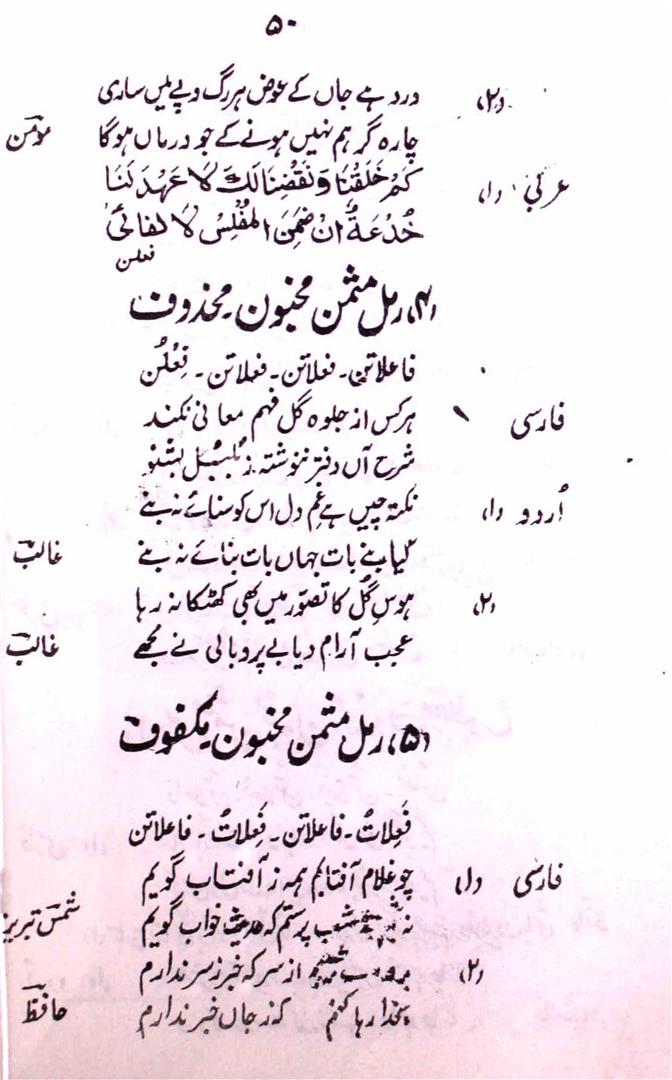 ۵۰
(۲) درد ہے جاں کے عوض ہر رگ و پے میں ساری
چارہ گر ہم نہیں ہونے کے جو درماں ہوگا مومنؔ
عربی (۱) كَمْ خَلَقْنَا وَنَقَضْنَا لَكَ لَا عَهْدَ لَنَا
خُدْعَةٌ اِنْ ضَمِنَ المُفْلِسُ لَا
فعلن
(۴) رمل مثمن مخبون ۔ محذوف
فاعلاتن ۔ فعلاتن ۔ فعلاتن ۔ فَعِلُن
فارسی ہر کس از جلوہ گل فہم معانی نکند
شرح آں دفتر ننوشتہ ز بلبل بشنو
اُردو (۱) نکتہ چیں ہے غم دل اس کو سنائے نہ بنے
کیا بنے بات جہاں بات بنائے نہ بنے غالبؔ
(۲) ہوسِ گُل کا تصوّر میں بھی کھٹکا نہ رہا
عجب آرام دیا بے پر و بالی نے مجھے غالبؔ
(۵) رمل مثمن مخبون ۔ مکفوف
فَعِلاتُ ۔ فاعلاتن ۔ فَعِلاتُ ۔ فاعلاتن
فارسی (۱) چو غلام آفتابم ہمہ ز آفتاب گویم
نہ شب پرستم کہ حدیث خواب گویم شمس تبریز
(۲) از سر کہ خبر ز سر ندارم
بخدا رہا کنم کہ ز جاں خبر ندارم حافظؔ